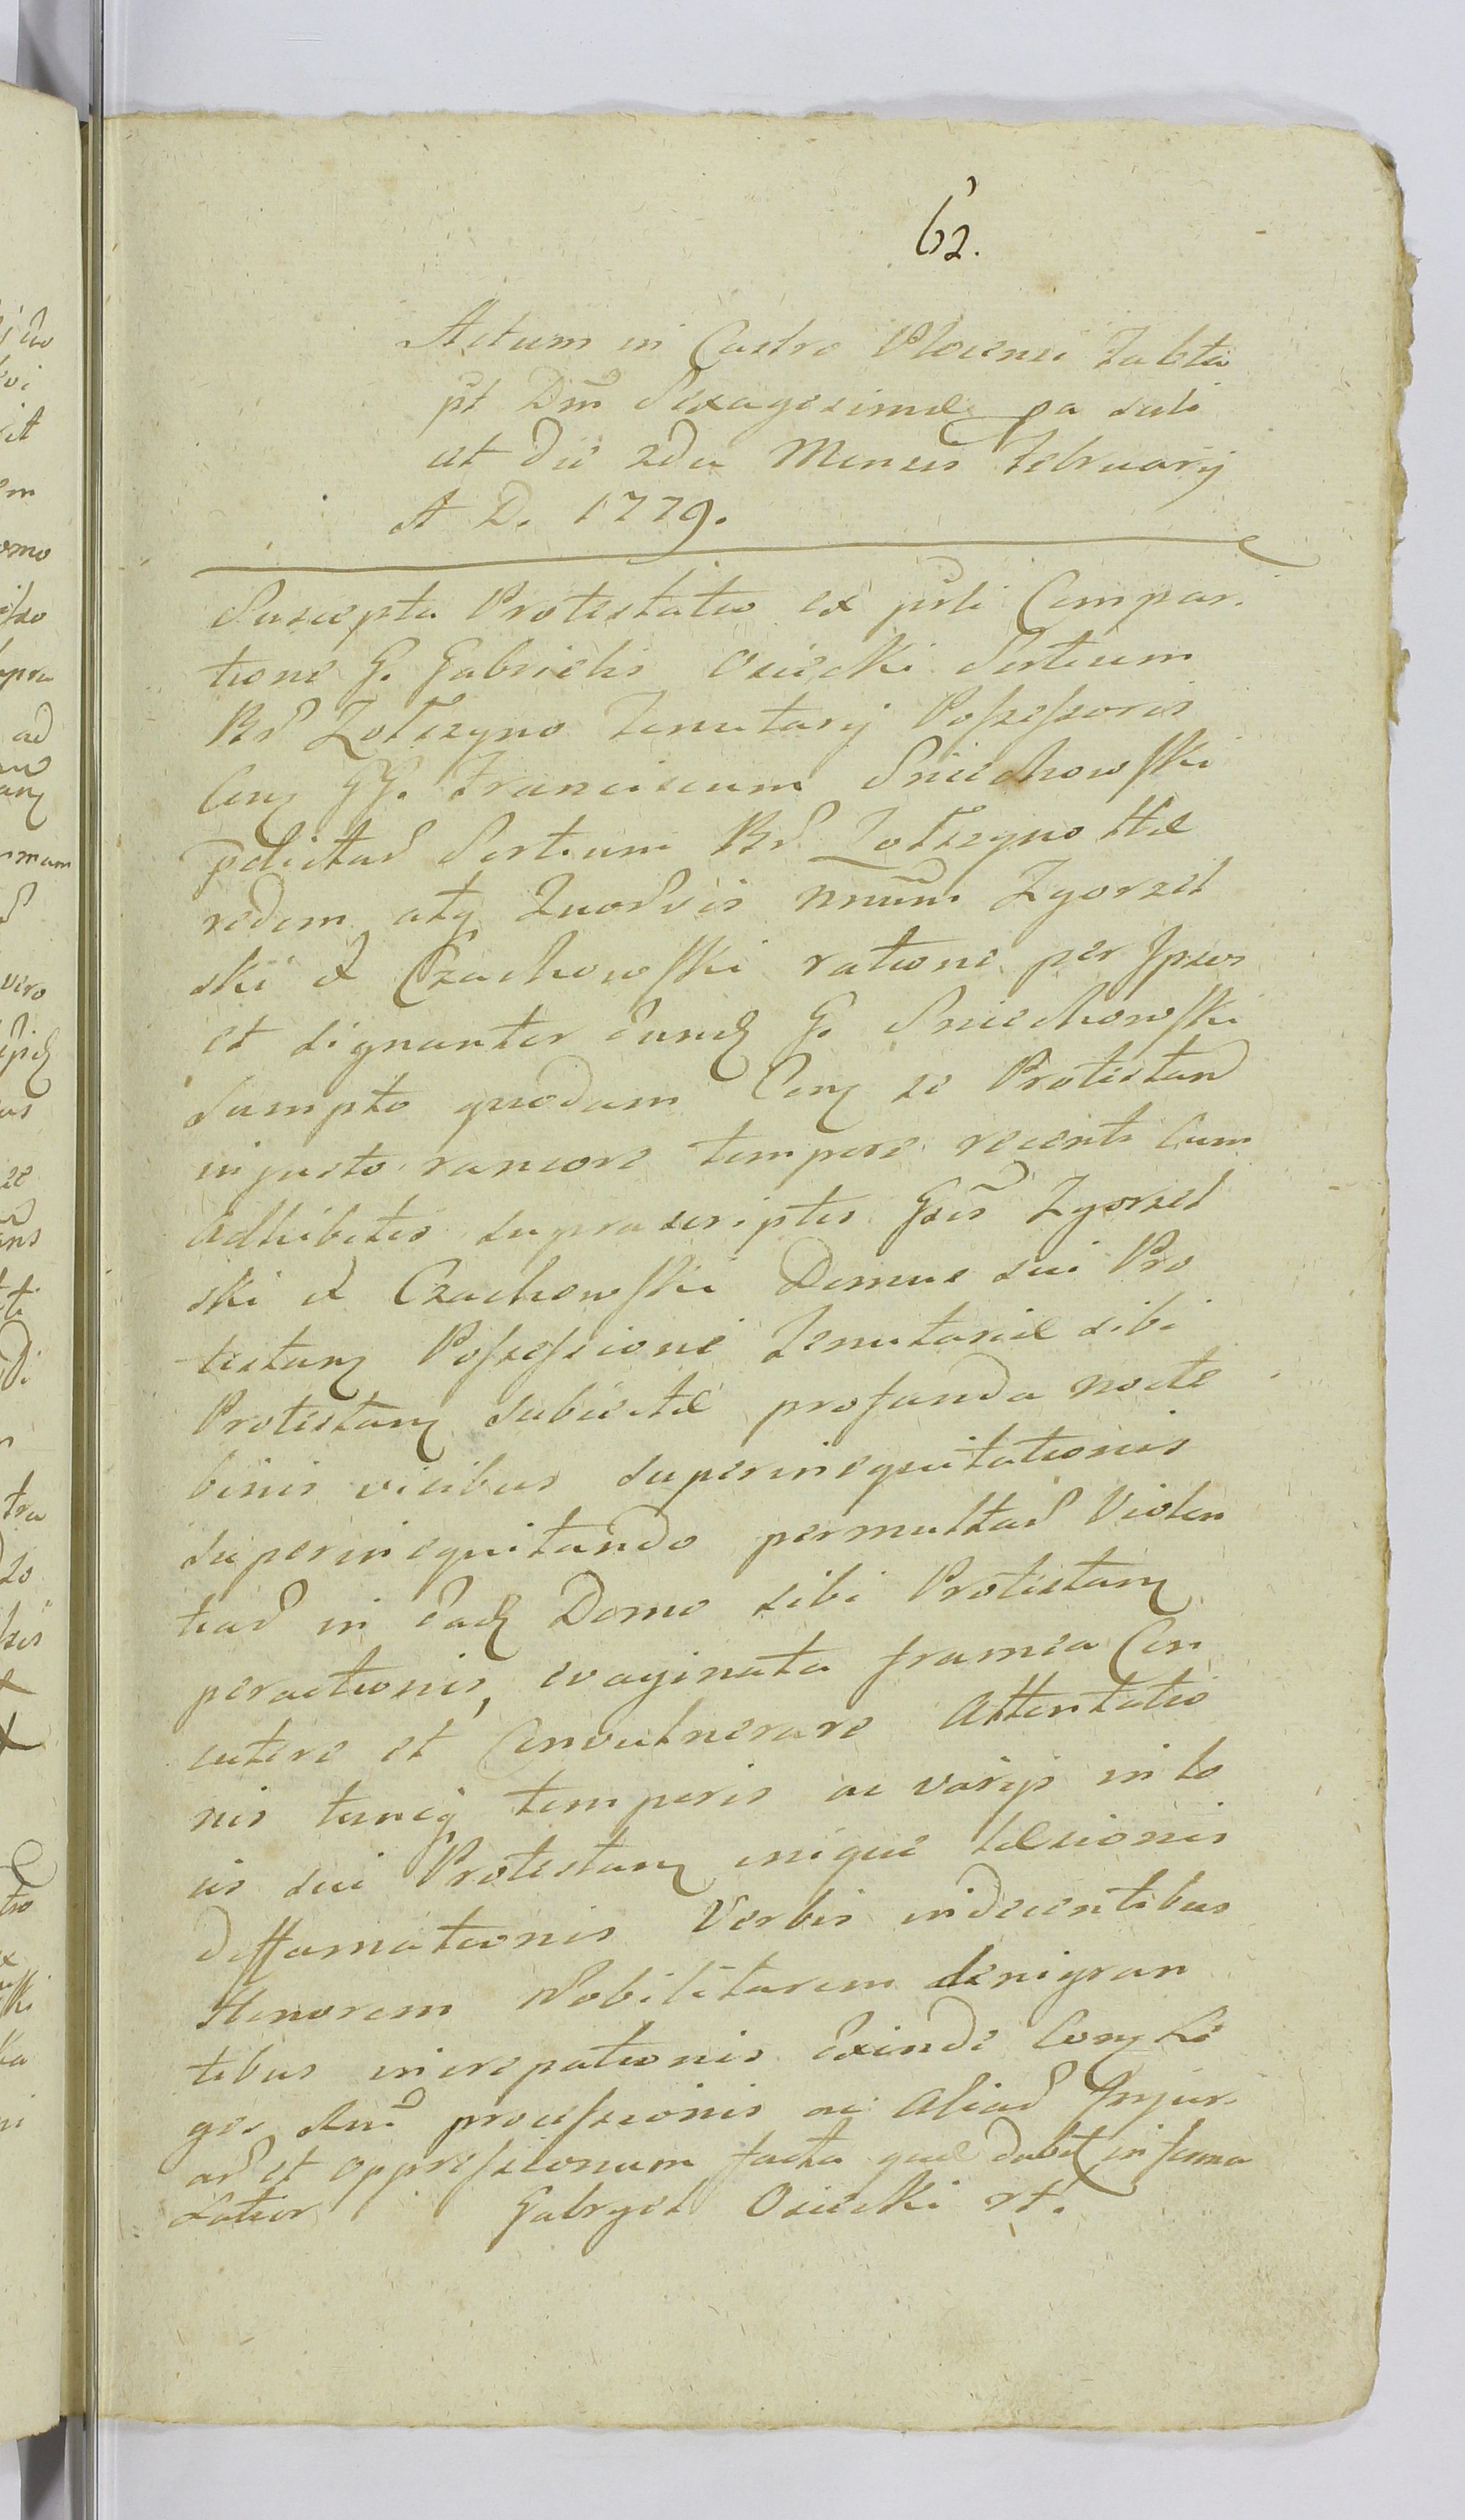 62.
Actum in Castro Plocensi Sabbto
pt Dm̃ Sexagesimæ pa suli
ut die 2da Mensis February
A D. 1779.
Suscepta Protestatio ex pñli Compar.
tione G. Gabrielis Osiecki Sortium
Bd Zołszyno Tenutarij Possessoris
Conz GG. Franciscum Sniechowski
pdictas Sortium Bd Zołszyno Hæ
redem atq Quosvis nnũm Zgorzel
ski et Czachowski ratione per Ipsos
et signanter Eund G. Sniechowski
Sumpto quodam Conz se Protestan
injusto rancore tempore recenti Cum
adhibitis suprascriptis Gsis Zgorzel
ski et Czachowski Domus sui Pro
testanz Possessioni Tenutariæ sibi
Protestanz subiectæ profunda nocte
binis vicibus superinequitationis
superinequitando permultas Violen
tias in Ead Domo sibi Protestanz
peractionis, evaginata framea Con
cutere et Convulnerare Attentatio
nis tuncq temporis ac varijs in lo
cis sui Protestanz inique læsionis
diffamationis Verbis indecentibus
Honorem Nobilitarem denigran
tibus increpationis Exinde Conz Le
ges processionis ac alias Injuri
as et oppressionum facta quæ dabit in forma
Latior Gabryel Osiecki